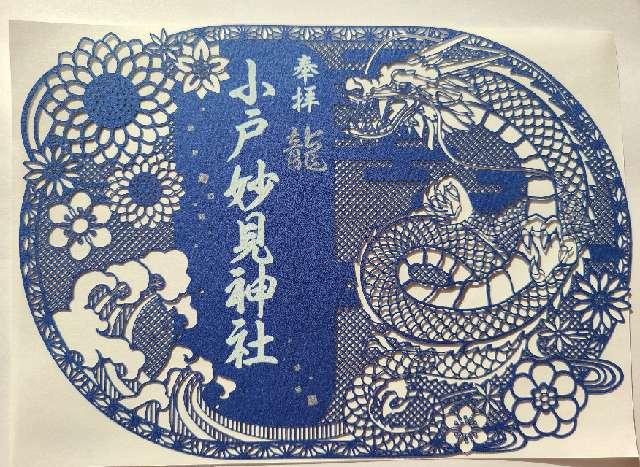 奉拝
龍
小戸妙見神社